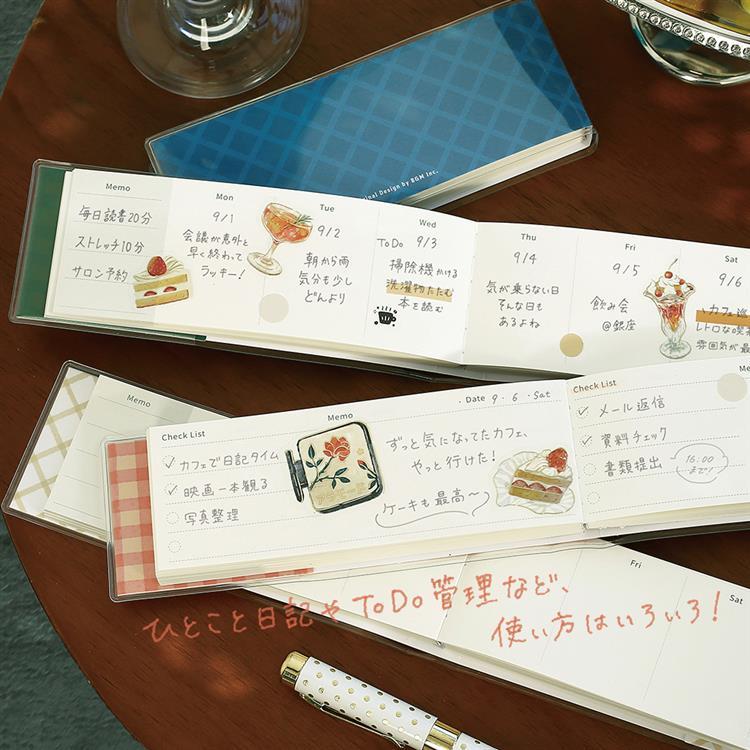 Original Design by BGM Inc.
Memo
毎日読書20分
ストレッチ10分
サロン予約
Mon
9/1
会議が意外と
早く終わって
ラッキー!
Tue
9/2
朝から雨
気分も少し
どんより
Wed
ToDo 9/3
掃除機かける
洗濯物たたむ
本を読む
Thu
9/4
気が乗らない日
そんな日も
あるよね
Fri
9/5
飲み会
@銀座
Sat
9/6
カフェ巡
レトロな喫
雰囲気が最
Memo
Check List
カフェで日記タイム
映画一本観る
写真整理
Memo
・Date 9・6・Sat
ずっと気になってたカフェ、
やっと行けた!
ケーキも最高〜
Check List
メール返信
資料チェック
書類提出
16:00
まで!
Me
Fri
Sat
ひとこと日記やToDo管理など、
使い方はいろいろ!